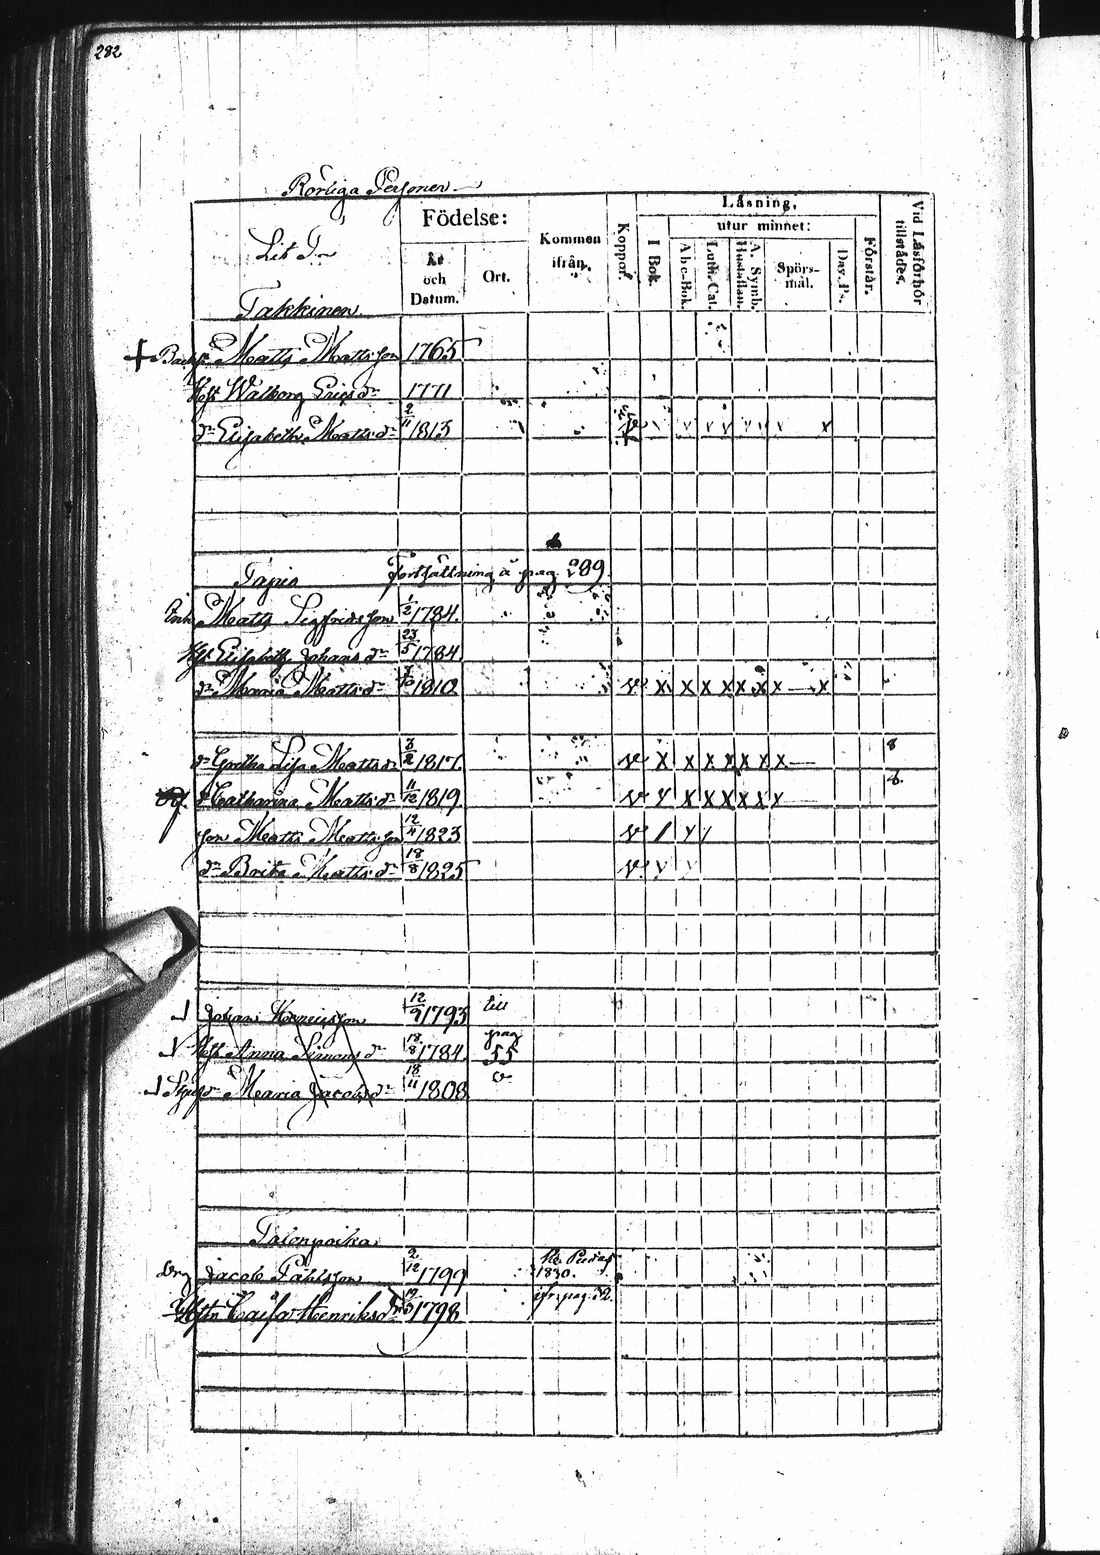 282
Rörliga Personer
Lit T
Födelse:
År och Datum.
Ort.
Kommen ifrån.
Koppor.
Läsning,
I Bok.
utur minnet:
Abc-Bok.
Luth. Cat.
A. Symb. Hustaflan.
Spörsmål.
Dav. Ps.
Förstår.
Vid Läsförhör tillstädes.
Takkinen
Matts Mattsson 1765
Hust Walborg Ericsdr 1771
dr Elisabeth Mattsdr 2/11 1813 v v v v v v v v x
Tapio Fortsättning å pag. 289
Matts Sigfridsson 1/2 1784.
Hust Elisabeth Johansdr 23/5 1784
dr Maria Mattsdr 1810. v x x x x x x x — x
dr Greta Lisa Mattsdr 3/2 1817. v x x x x x x x — 8
dr Catharina Mattsdr 11/12 1819. v v x x x x x x — 8.
son Matts Mattsson 12/4 1823 v / y /
dr Brita Mattsdr 18/8 1825 v y
Johan Henricsson 12/9 1793 till
Hust Anna Simonsdr 18/8 1784. pag 55
Maria Jacobsdr 18/11 1808
Talonpoika
Jacob Påhlsson 2/12 1799 1830.
Hstn Caisa Henriksdr 1798 ifr. pag. 32.